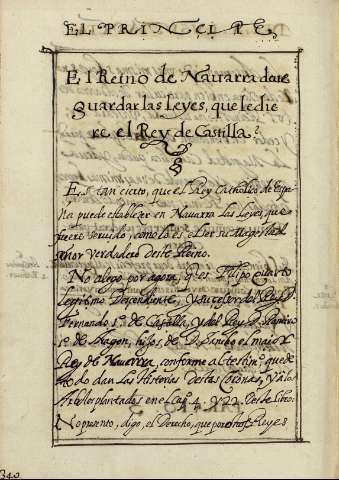 EL PRINCIPE
El Reino de Navarra deve
guardar las Leyes, que le die
re el Rey de Castilla.
Es tan cierto, que el Rey Catholico de Espa
ña puede establezer en Navarra las Leyes, que
fuere servido, como la es el ser su Magestad
señor verdadero deste Reino.
No alego por agora, q es Filipo Quarto
legitimo Descendiente, y sucesor del Rey D.
Fernando 1º. de Castilla, y del Rey D. Ramiro
1º. de Aragon, hijos, de D. Sancho el maior
Rey de Navarra, conforme al testimº. que de
todo dan las Historias destas Coronas, y a los
Arboles plantados en el Cap. 4. y 22. deste libro.
No presento, digo, el Derecho, que por dhos Reyes
340